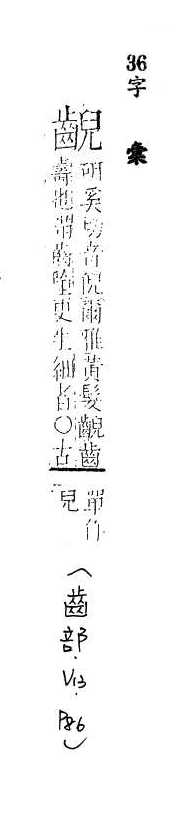 36字彙
齯 研奚切音倪爾雅黃髮齯齒
壽也謂齒墮更生細者○古
單作
兒
(齒部.V13.P86)